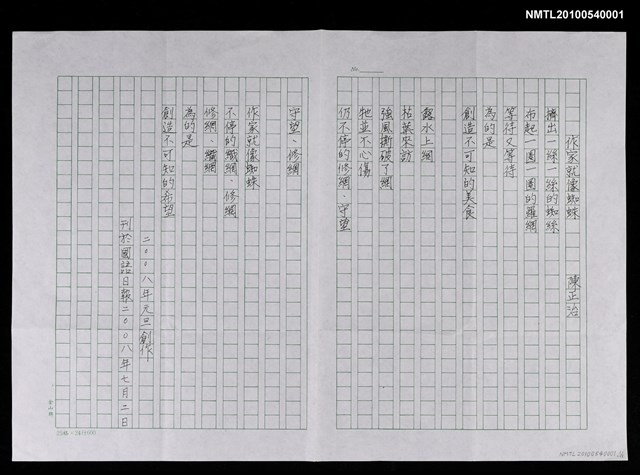 NMTL20100540001
No.
作家就像蜘蛛　陳正治
擠出一絲一絲的蜘絲
布起一圈一圈的羅網
等待又等待
為的是
創造不可知的美食
露水上網
枯葉來訪
強風撕破了網
牠並不心傷
仍不停的修網、守望
守望、修網
作家就像蜘蛛
不停的織網、修網
修網、織網
為的是
創造不可知的希望
二〇〇八年元旦創作
刊於國語日報二〇〇八年七月二日